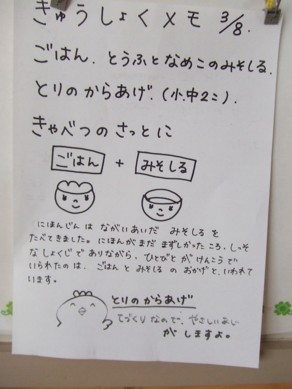 きゅうしょくメモ 3/8.
ごはん. とうふとなめこのみそしる.
とりのからあげ.(小.中2コ).
きゃべつのさっとに
ごはん + みそしる
にほんじん は ながいあいだ みそしる を
たべてきました。にほんがまだ まずしかった ころ、しっそ
な しょくじ で ありながら、ひとびと が けんこう で
いられたのは、ごはん と みそしる の おかげだと、いわれて
います。
とりのからあげ
てづくり なので、やさしいあじ
が しますよ。